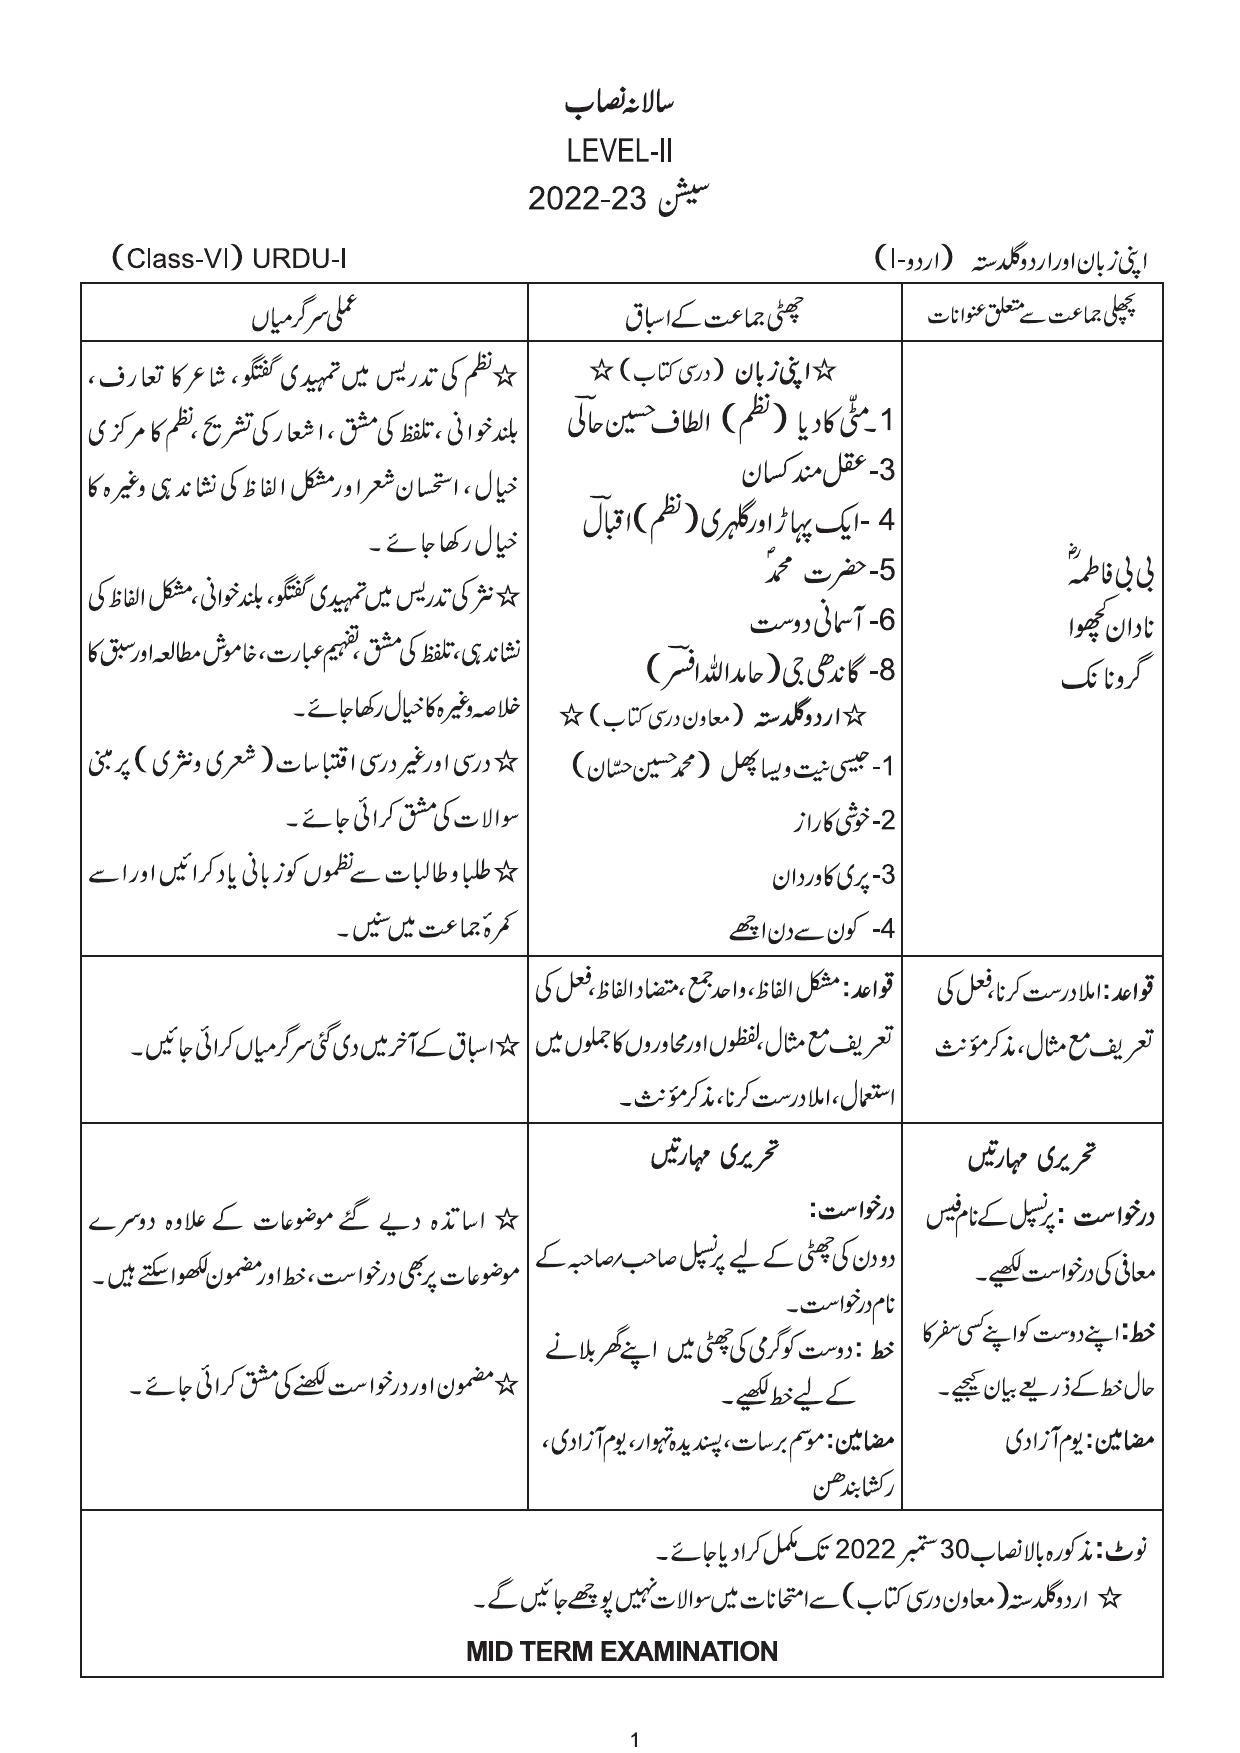 سالانہ نصاب
LEVEL-II
سیشن 2022-23
اپنی زبان اور اردو گلدستہ (اردو-I)
(Class-VI) URDU-I
پچھلی جماعت سے متعلق عنوانات
چھٹی جماعت کے اسباق
عملی سرگرمیاں
بی بی فاطمہؓ
نادان کچھوا
گرو نانک
☆اپنی زبان (درسی کتاب)☆
1۔مٹّی کا دیا (نظم) الطاف حسین حالیؔ
3-عقل مند کسان
4 -ایک پہاڑ اور گلہری (نظم) اقبالؔ
5-حضرت محمدؐ
6- آسمانی دوست
8- گاندھی جی (حامد اللہ افسرؔ)
☆اردو گلدستہ (معاون درسی کتاب)☆
1-جیسی نیت ویسا پھل (محمد حسین حسّان)
2-خوشی کا راز
3-پری کا وردان
4- کون سے دن اچھے
☆نظم کی تدریس میں تمہیدی گفتگو، شاعر کا تعارف،
بلند خوانی، تلفظ کی مشق، اشعار کی تشریح، نظم کا مرکزی
خیال، استحسان شعر اور مشکل الفاظ کی نشاندہی وغیرہ کا
خیال رکھا جائے۔
☆نثر کی تدریس میں تمہیدی گفتگو، بلند خوانی، مشکل الفاظ کی
نشاندہی، تلفظ کی مشق، تفہیم عبارت، خاموش مطالعہ اور سبق کا
خلاصہ وغیرہ کا خیال رکھا جائے۔
☆درسی اور غیر درسی اقتباسات (شعری و نثری) پر مبنی
سوالات کی مشق کرائی جائے۔
☆طلبا و طالبات سے نظموں کو زبانی یاد کرائیں اور اسے
کمرۂ جماعت میں سنیں۔
قواعد: املا درست کرنا، فعل کی
تعریف مع مثال، مذکر مؤنث
قواعد: مشکل الفاظ، واحد جمع، متضاد الفاظ، فعل کی
تعریف مع مثال، لفظوں اور محاوروں کا جملوں میں
استعمال، املا درست کرنا، مذکر مؤنث۔
☆اسباق کے آخر میں دی گئی سرگرمیاں کرائی جائیں۔
تحریری مہارتیں
درخواست: پرنسپل کے نام فیس
معافی کی درخواست لکھیے۔
خط: اپنے دوست کو اپنے کسی سفر کا
حال خط کے ذریعے بیان کیجیے۔
مضامین: یوم آزادی
تحریری مہارتیں
درخواست:
دو دن کی چھٹی کے لیے پرنسپل صاحب/صاحبہ کے
نام درخواست۔
خط: دوست کو گرمی کی چھٹی میں اپنے گھر بلانے
کے لیے خط لکھیے۔
مضامین: موسم برسات، پسندیدہ تہوار، یوم آزادی،
رکشا بندھن
☆ اساتذہ دیے گئے موضوعات کے علاوہ دوسرے
موضوعات پر بھی درخواست، خط اور مضمون لکھوا سکتے ہیں۔
☆مضمون اور درخواست لکھنے کی مشق کرائی جائے۔
نوٹ: مذکورہ بالا نصاب 30 ستمبر 2022 تک مکمل کرا دیا جائے۔
☆ اردو گلدستہ (معاون درسی کتاب) سے امتحانات میں سوالات نہیں پوچھے جائیں گے۔
MID TERM EXAMINATION
1